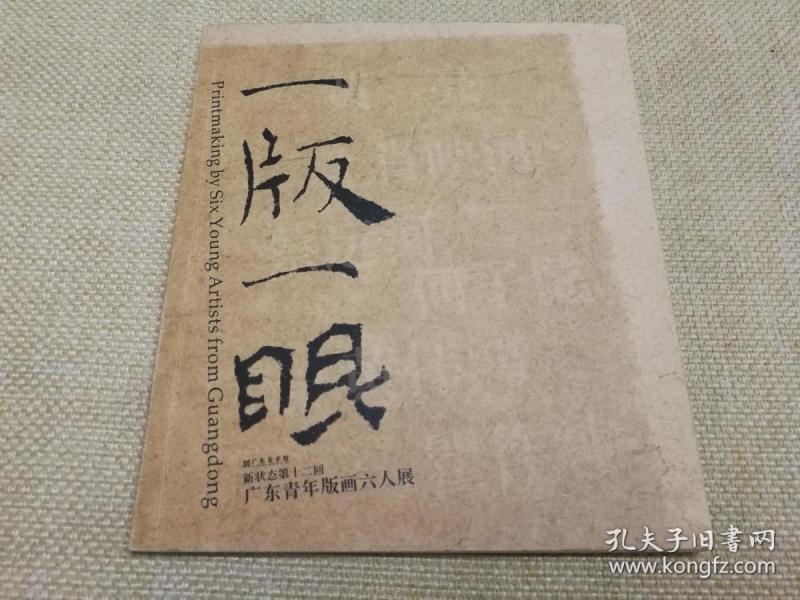 一版一眼
Printmaking by Six Young Artists from Guangdong
广东美术馆
新状态第十二回
广东青年版画六人展
孔夫子旧書网
www.kongfz.com